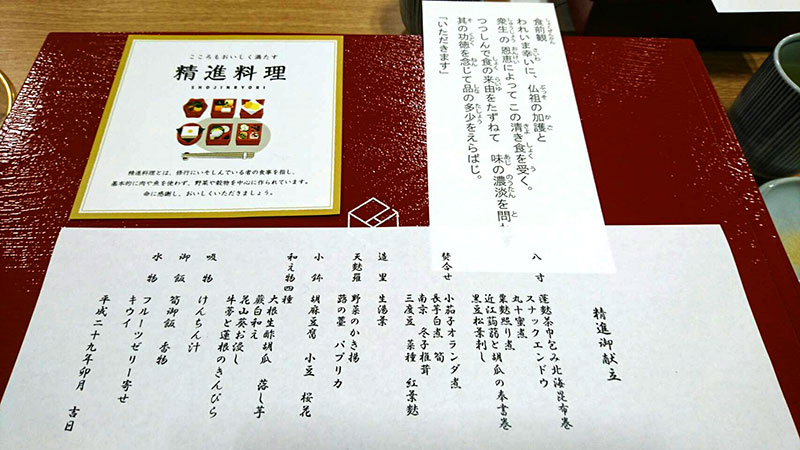 こころもおいしく満たす
精進料理
SHOJINRYORI
精進料理とは、修行にいそしんでいる者の食事を指し、
基本的に肉や魚を使わず、野菜や穀物を中心に作られています。
命に感謝し、おいしくいただきましょう。
食前観
われいま幸いに、仏祖の加護と
衆生の恩恵によってこの清き食を受く。
つつしんで食の来由をたずねて 味の濃淡を問
其の功徳を念じて品の多少をえらばじ。
「いただきます」
精進御献立
八寸 蓬麩茶巾包み 北海昆布巻
スナックエンドウ
丸十蜜煮
粟麩照り煮
近江蒟蒻と胡瓜の奉書巻
黒豆松葉刺し
焚合せ 小茄子オランダ煮
長芋白煮 筍
南京 冬子椎茸
三度豆 菜種 紅葉麩
造里 生湯葉
天麩羅 野菜のかき揚
蕗の薹 パプリカ
小鉢 胡麻豆富 小豆 桜花
和え物四種
大根生酢胡瓜 落し芋
蕨白和え
花山葵お浸し
牛蒡と蓮根のきんぴら
吸物 けんちん汁
御飯 筍御飯 香物
水物 フルーツゼリー寄せ
キウイ
平成二十九年卯月 吉日